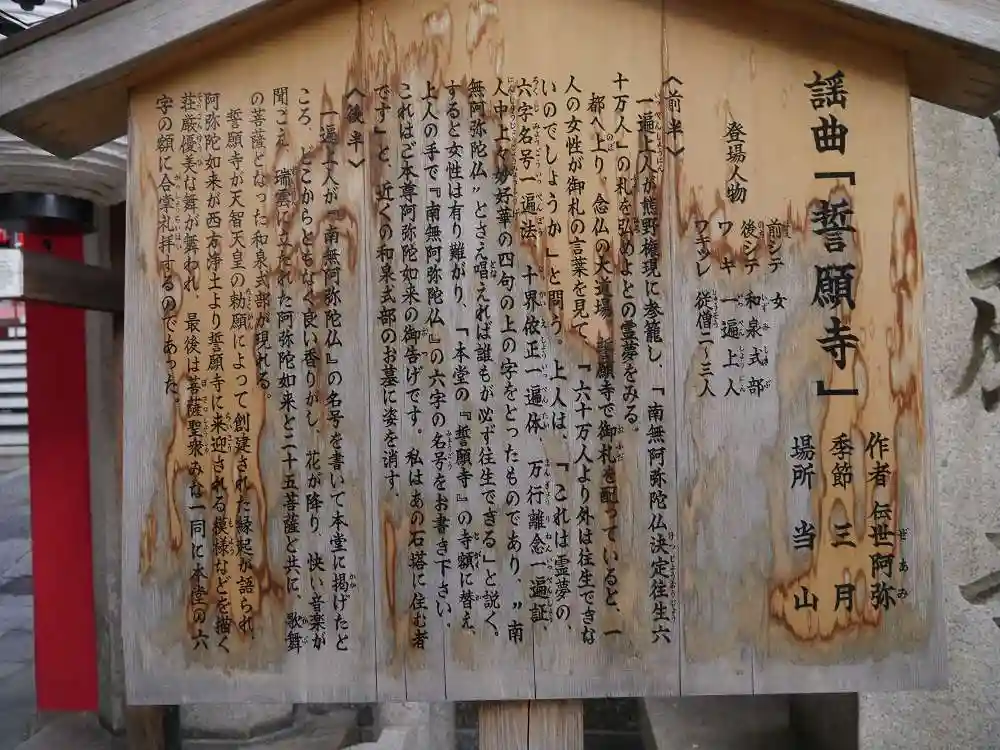 謡曲「誓願寺」
作者 伝世阿弥
季節 三月
場所 当山
登場人物
前シテ 女
後シテ 和泉式部
ワキ 一遍上人
ワキツレ 従僧二~三人
〈前半〉
一遍上人が熊野権現に参籠し、「南無阿弥陀仏決定往生六
十万人」の札を弘めよとの霊夢をみる。
都へ上り、念仏の大道場、誓願寺で御札を配っていると、一
人の女性が御札の言葉を見て、「六十万人より外は往生できな
いのでしょうか」と問う。上人は、「これは霊夢の、
六字名号一遍法、十界依正一遍体、万行離念一遍証、
人中上々妙好華の四句の上の字をとったものであり、〝南
無阿弥陀仏〟とさえ唱えれば誰もが必ず往生できる」と説く。
すると女性は有り難がり、「本堂の『誓願寺』の寺額に替え、
上人の手で『南無阿弥陀仏』の六字の名号をお書き下さい、
これはご本尊阿弥陀如来の御告げです。私はあの石塔に住む者
です」と、近くの和泉式部のお墓に姿を消す。
〈後半〉
一遍上人が『南無阿弥陀仏』の名号を書いて本堂に掲げたと
ころ、どこからともなく良い香りがし、花が降り、快い音楽が
聞こえ、瑞雲に立たれた阿弥陀如来と二十五菩薩と共に、歌舞
の菩薩となった和泉式部が現れる。
誓願寺が天智天皇の勅願によって創建された縁起が語られ、
阿弥陀如来が西方浄土より誓願寺に来迎される模様などを描く
荘厳優美な舞が舞われ、最後は菩薩聖衆みな一同に本堂の六
字の額に合掌礼拝するのであった。